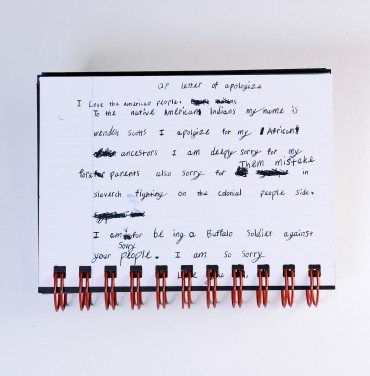 a? letter of apologize
I Love the american people.
To the native American Indians my name is
wendell scotts I apolgize for my African
ancestors I am deeply sorry for my
Them mistake
parents also sorry for in
slaverch fighting on the colonial people side.
I am for being a Buffalo Soldier against
Sorry
your people. I am so sorry